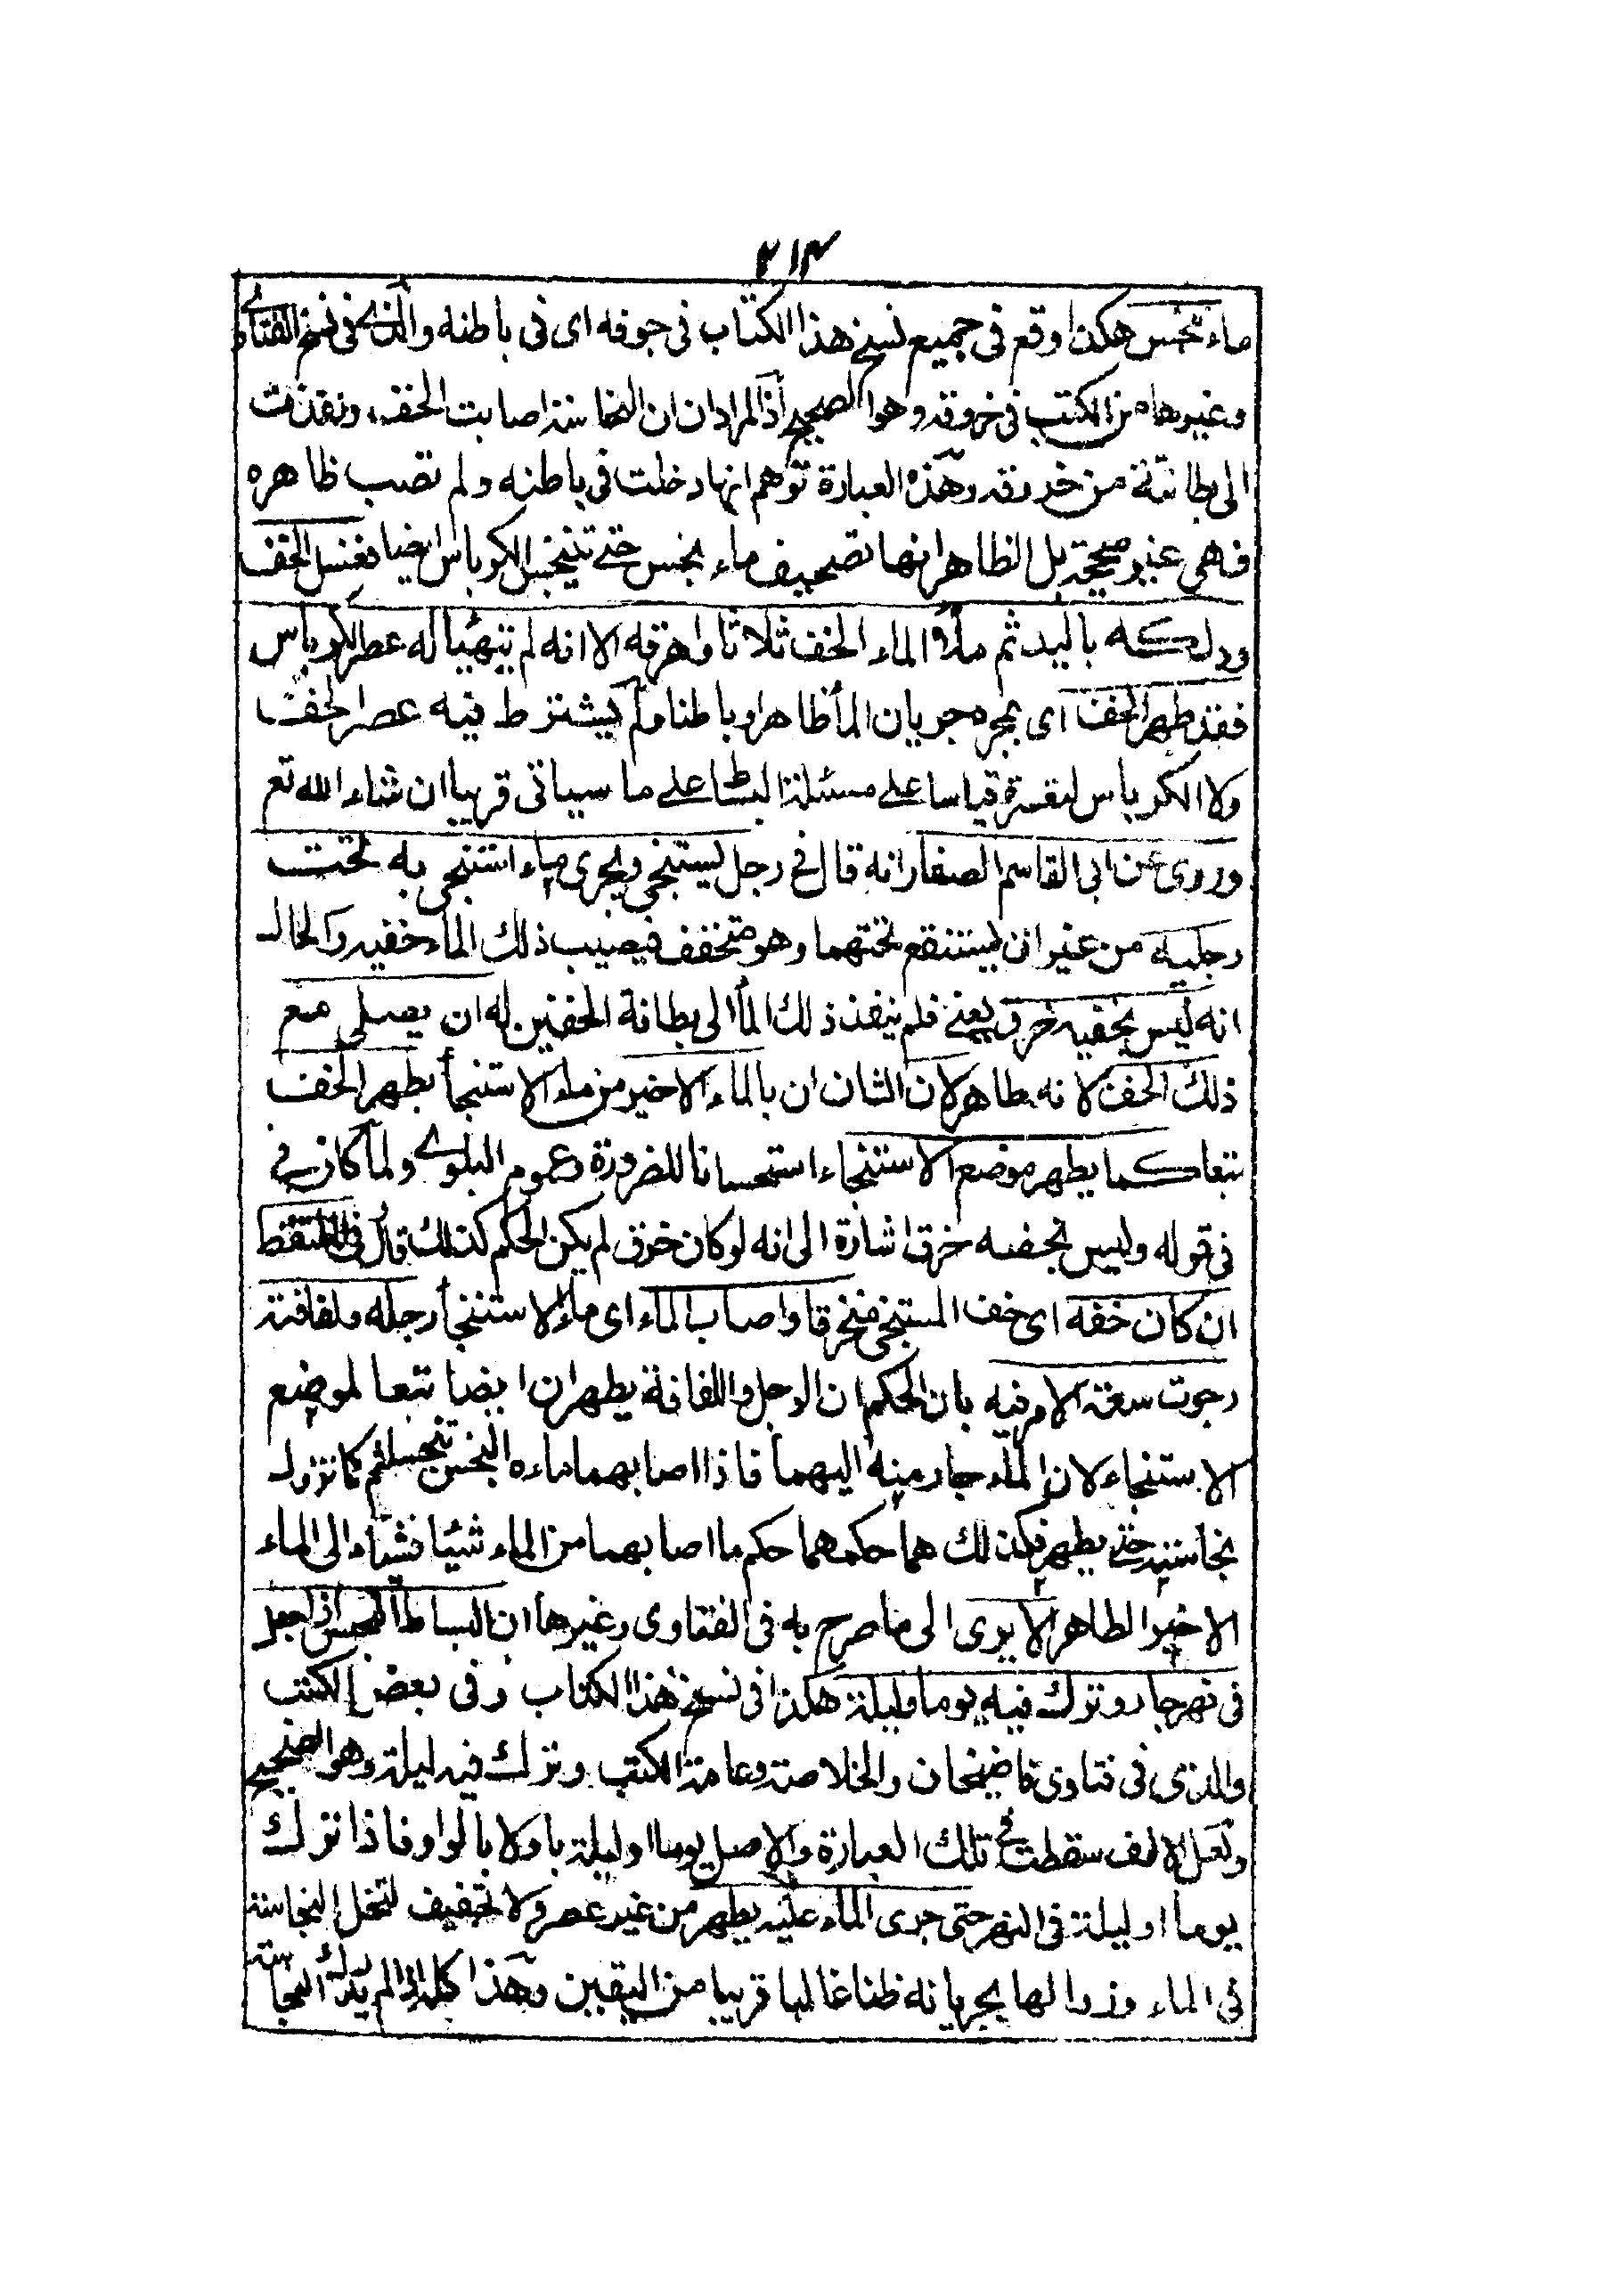 ٢١٣
ماء نجس هكذا وقع في جميع نسخ هذا الكتاب في جوفه اى في باطنه والذي في نسخ الفتاوى
وغيرها من الكتب في خروقه وهو الصحيح اذ المراد ان النجاسة اصابت الخف ونفذت
الى بطانته من خروقه وهذه العبارة توهم انها دخلت في باطنه ولم تصب ظاهره
فهى غير صحيحة بل الظاهر انها تصحيف ماء نجس حتى تنجس الكرباس ايضا فغسل الخف
ودلكه باليد ثم ملأ الماء الخف ثلاثا واهرقه الا انه لم يتهيأ له عصر الكرباس
فقد طهر الخف اى بمجرد جريان الماء ظاهرا وباطنا ولم يشترط فيه عصر الخف
ولا الكرباس لتعسره قياسا على مسئلة البساط على ما سياتى قريبا ان شاء الله تع
وروى عن ابى القاسم الصفار انه قال في رجل يستنجى ويجرى ماء استنجى به تحت
رجليه من غير ان يستنقع تحتهما وهو متخفف فيصيب ذلك الماء خفيه والحال
انه ليس بخفيه خرق يعنى فلم ينفذ ذلك الماء الى بطانة الخفين له ان يصلى مع
ذلك الخف لانه طاهر لان الشان ان بالماء الاخير من ماء الاستنجاء يطهر الخف
تبعا كما يطهر موضع الاستنجاء استحسانا للضرورة وعموم البلوى ولما كان في
في قوله وليس بخفه خرق اشارة الى انه لو كان خرق لم يكن الحكم كذلك قال في الملتقط
ان كان خفه اى خف المستنجى منخرقا واصاب الماء اى ماء الاستنجاء رجله ولفافته
رجوت سعة الامر فيه بان الحكم ان الرجل واللفافة يطهران ايضا تبعا لموضع
الاستنجاء لان الماء جار منه اليهما فاذا اصابهما ماءه النجس تنجسا ثم كما تزول
نجاسته حتى يطهر فكذلك هما حكمهما حكم ما اصابهما من الماء شيئا فشياء الى الماء
الاخير الطاهر الا يرى الى ما صرح به في الفتاوى وغيرها ان البساط النجس اذا جعل
في نهر جار وترك فيه يوما وليلة هكذا في نسخ هذا الكتاب وفي بعض الكتب
والذى في فتاوى قاضيخان والخلاصة وعامة الكتب وترك فيه ليلة وهو الصحيح
ولعل الالف سقطت في تلك العبارة والاصل يوما او ليلة باو لا بالواو فاذا ترك
يوما او ليلة في النهر حتى جرى الماء عليه يطهر من غير عصر ولا تجفيف لتخلل النجاسة
في الماء وزوالها بجريانه ظنا غالبا قريبا من اليقين وهذا كله اذا لم يدرك النجاسة